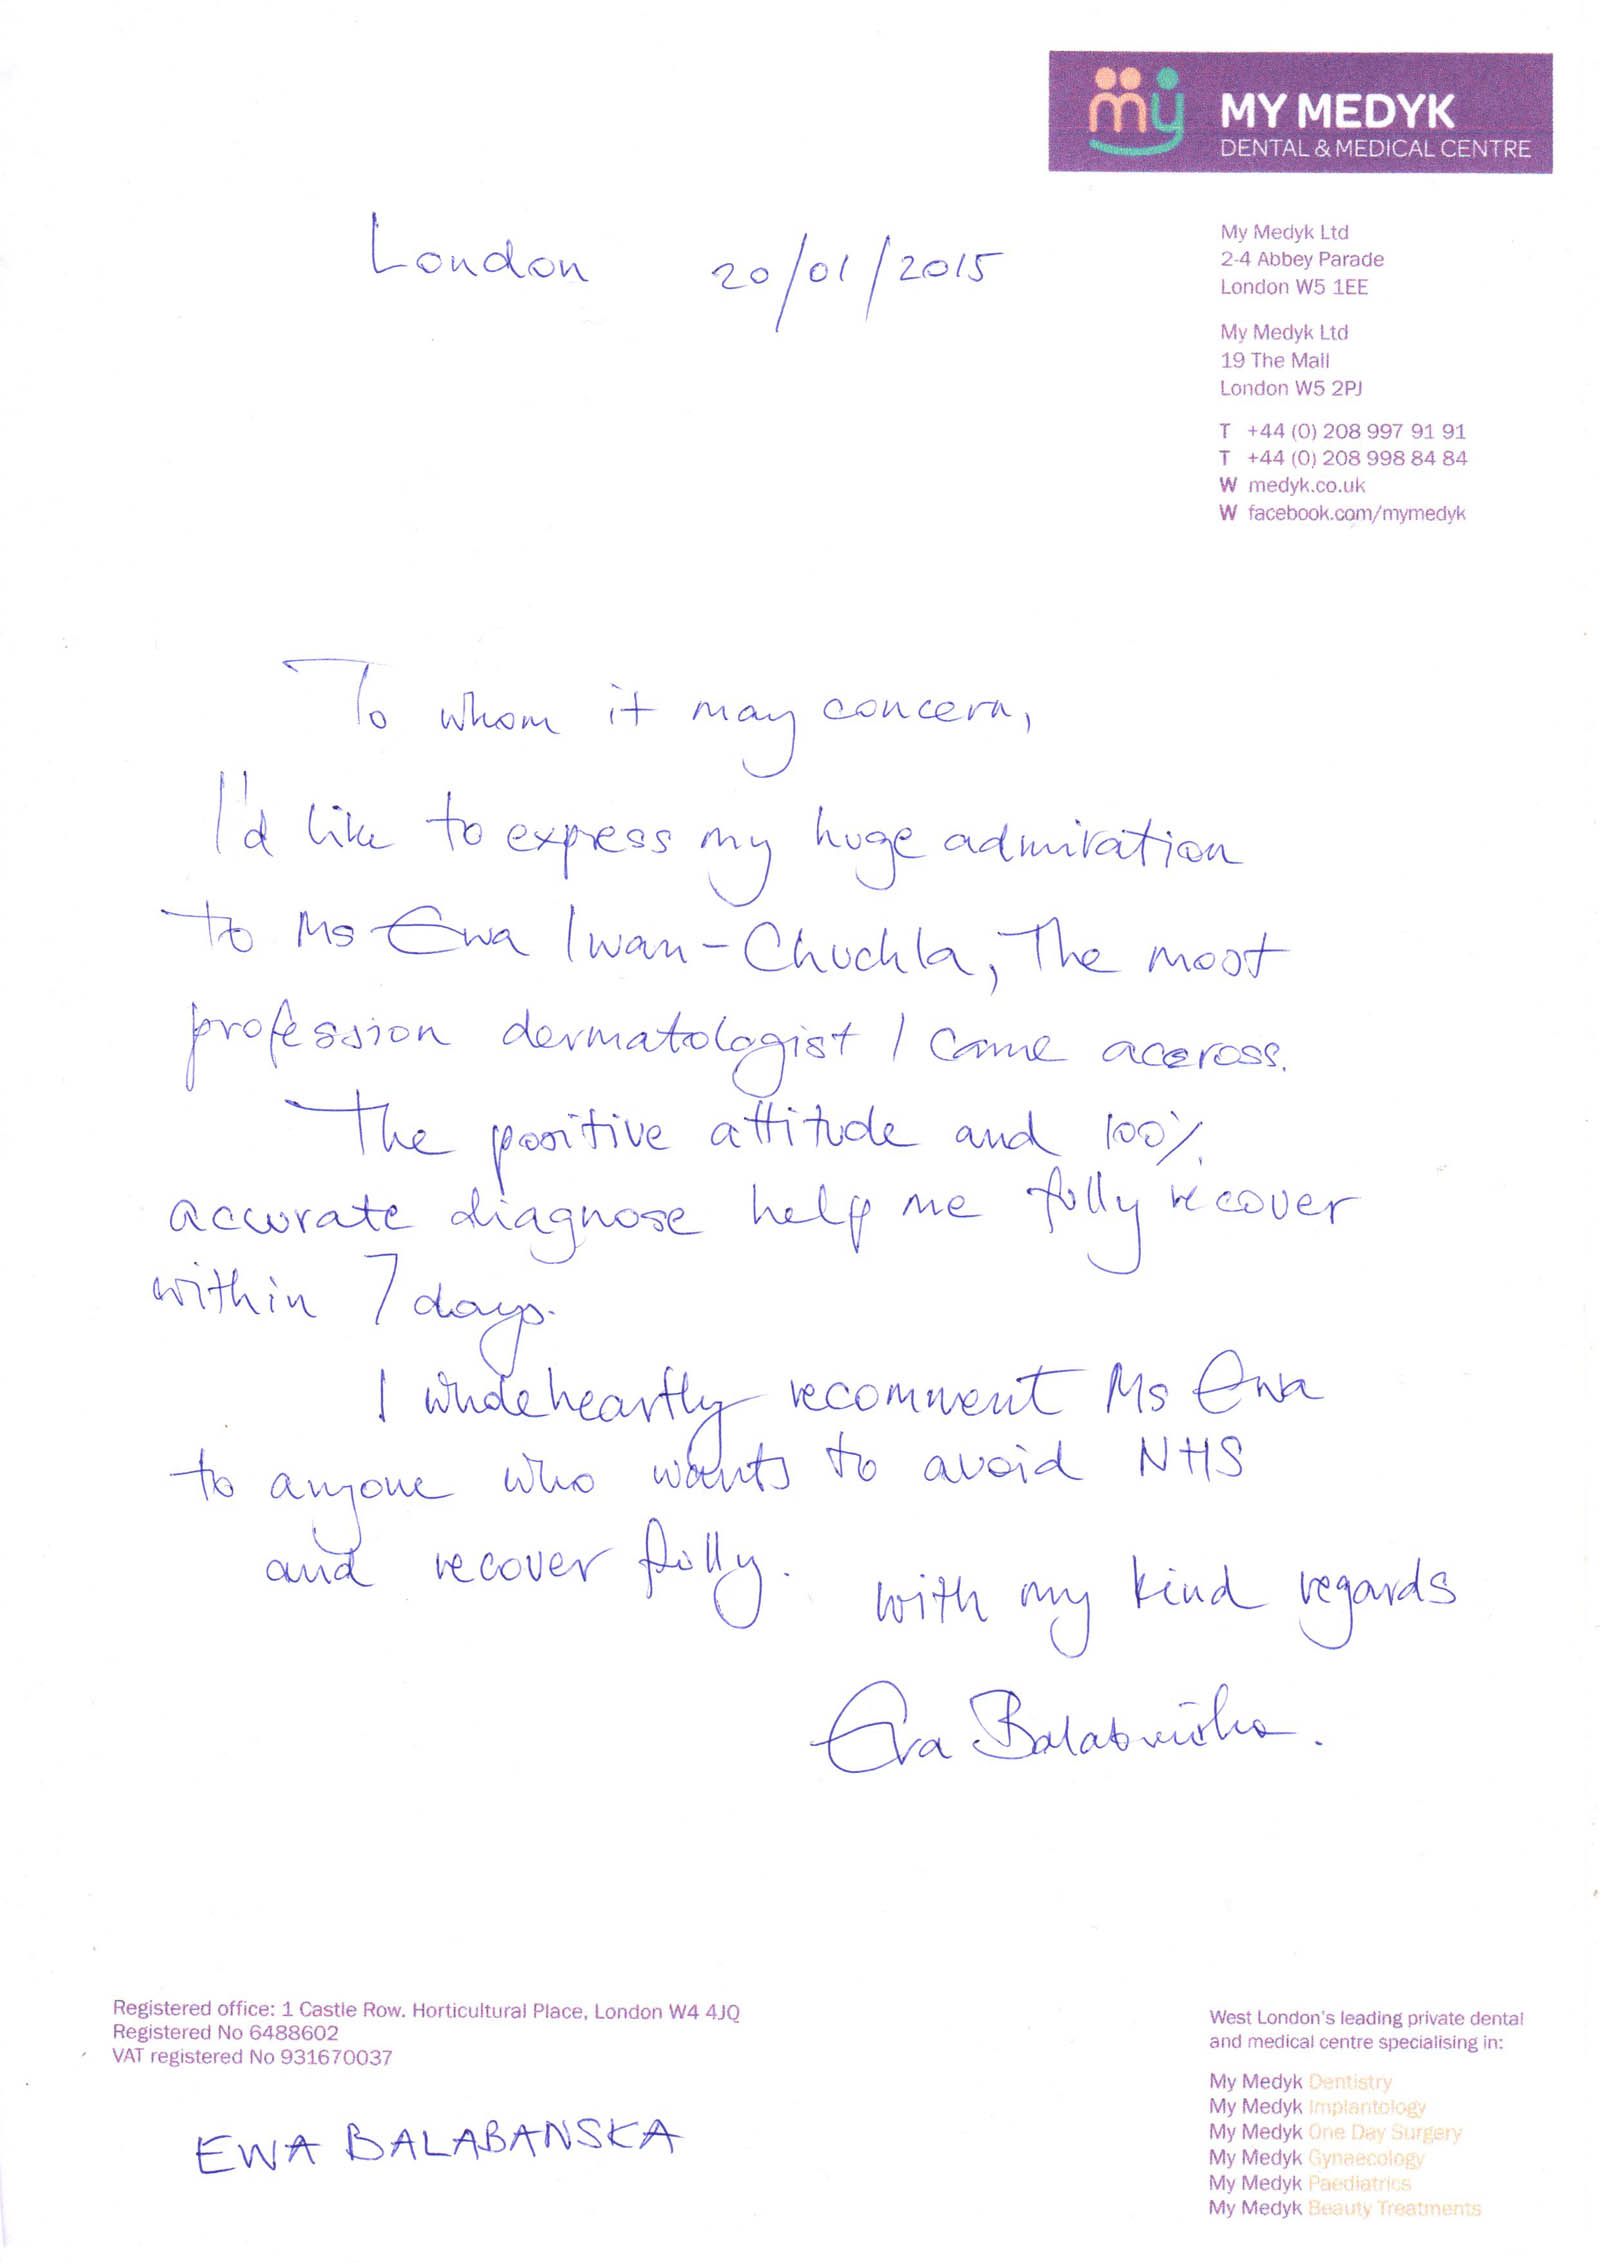 MY MEDYK
DENTAL & MEDICAL CENTRE
London 20/01/2015
My Medyk Ltd
2-4 Abbey Parade
London W5 1EE
My Medyk Ltd
19 The Mall
London W5 2PJ
T +44 (0) 208 997 91 91
T +44 (0) 208 998 84 84
W medyk.co.uk
W facebook.com/mymedyk
To whom it may concern,
I'd like to express my huge admiration
to Ms Ewa Iwan-Chuchla, The most
profession dermatologist I came accross.
The positive attitude and 100%
accurate diagnose help me fully recover
within 7 days.
I wholeheartly recomment Ms Ewa
to anyone who wants to avoid NHS
and recover fully.
with my kind regards
Ewa Balabańska.
Registered office: 1 Castle Row. Horticultural Place, London W4 4JQ
Registered No 6488602
VAT registered No 931670037
EWA BALABANSKA
West London's leading private dental
and medical centre specialising in:
My Medyk Dentistry
My Medyk Implantology
My Medyk One Day Surgery
My Medyk Gynaecology
My Medyk Paediatrics
My Medyk Beauty Treatments